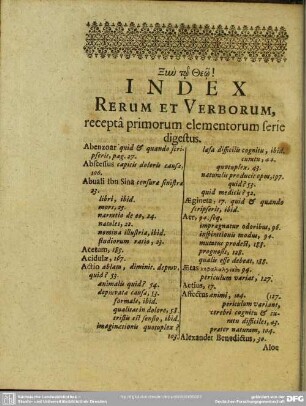 Ξὺν τῷ Θεῷ!
INDEX
RERUM ET VERBORUM,
receptâ primorum elementorum serie
digestus.
Abenzoar quid & quando scri-
pserit, pag. 27.
Abscessus capitis doloris causa,
100.
Abuali Ibn Sina censura sinistra
23.
libri, ibid.
mors, 25.
narratio de eo, 24.
natales, 22.
nomina illustria, ibid.
studiorum ratio, 23.
Acetum, 185.
Acidulæ, 167.
Actio ablata, diminut. deprav.
quid? 53.
animalis quid? 54.
depravata causa, 53.
formalis, ibid.
qualitas in dolore, 58.
tristis est sensio, ibid.
imaginationis quotuplex?
103.
læsa difficilis cognitu, ibid.
cutitu, 44.
quotuplex, 43.
naturalis producit copos, 197
quid? 55.
quid medicis? 52.
Ægineta, 17. quid & quando
scripserit, ibid.
Aer, 94. seq.
impragnatur odoribus, 96.
inspirationis modus, 94.
mutatus prodest, 188.
prognosis, 118.
qualis esse debeat, 188.
Ætas 94.
periculum variat, 127.
Aetius, 17.
Affectus animi, 104. (127.
periculum variant,
cerebri cognitu & cu-
ratu difficiles, 43.
præter naturam, 104.
Alexander Benedictus, 30.
Aloe